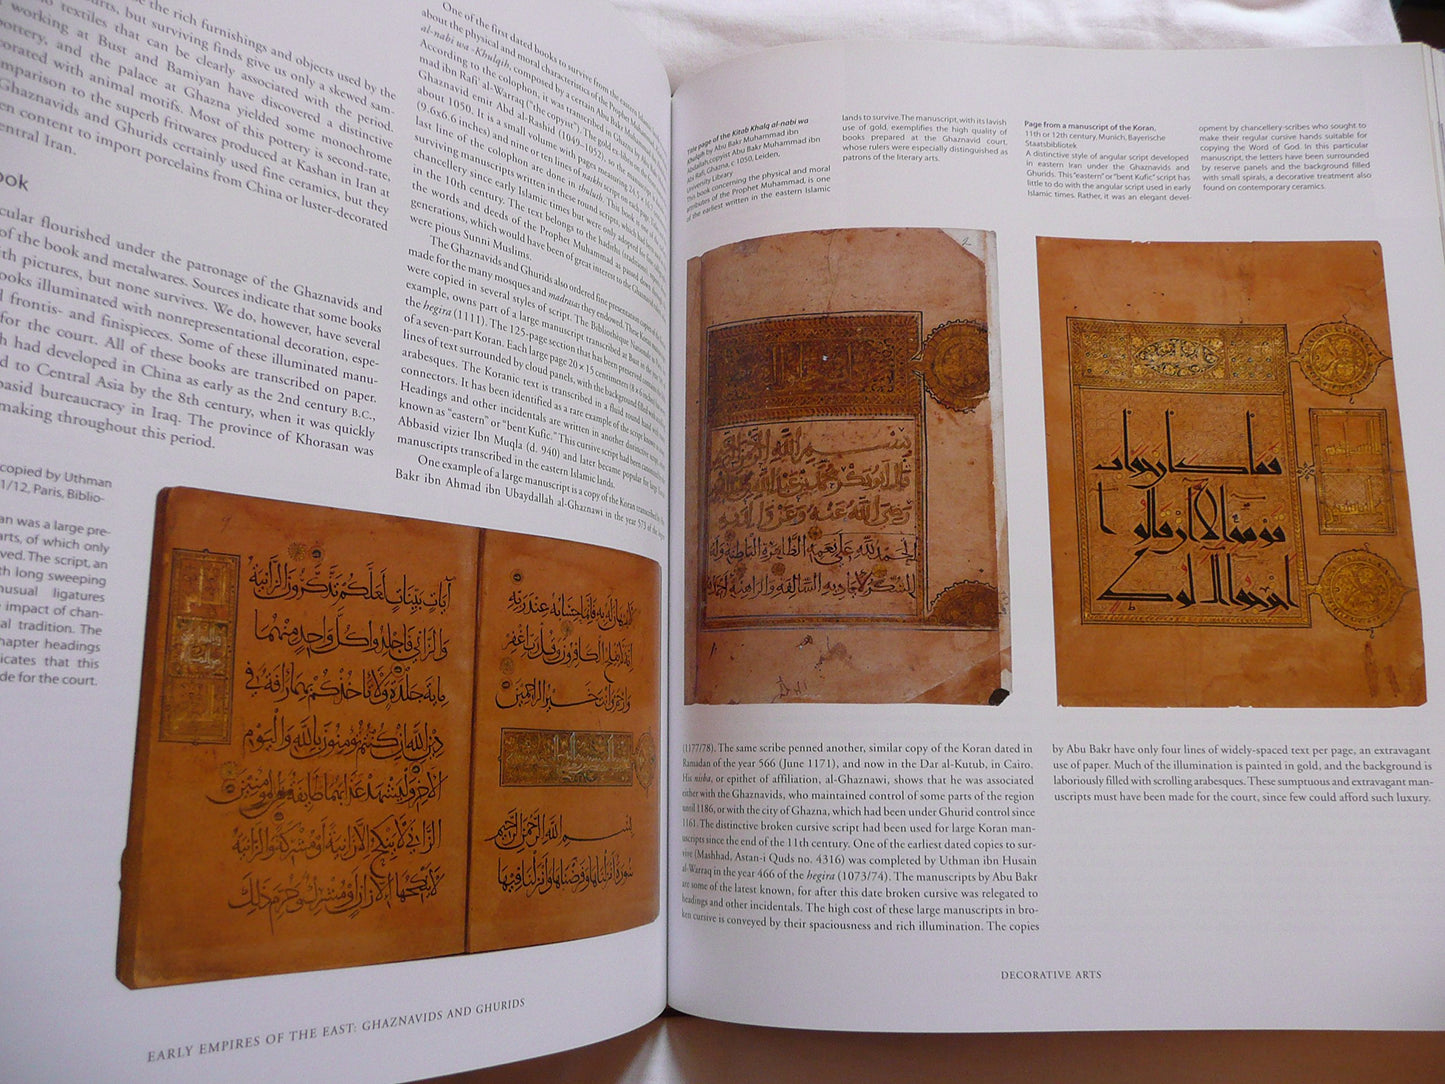 the rich furnishings and objects used by the
arts, but surviving finds give us only a skewed sam-
textiles that can be clearly associated with the period.
working at Bust and Bamiyan have discovered a distinctive
pottery, and the palace at Ghazna yielded some monochrome
decorated with animal motifs. Most of this pottery is second-rate,
comparison to the superb fritwares produced at Kashan in Iran at
Ghaznavids and Ghurids certainly used fine ceramics, but they
en content to import porcelains from China or luster-decorated
central Iran.
ook
cular flourished under the patronage of the Ghaznavids and
of the book and metalwares. Sources indicate that some books
ith pictures, but none survives. We do, however, have several
ooks illuminated with nonrepresentational decoration, espe-
d frontis- and finispieces. Some of these illuminated manu-
for the court. All of these books are transcribed on paper.
h had developed in China as early as the 2nd century B.C.,
d to Central Asia by the 8th century, when it was quickly
basid bureaucracy in Iraq. The province of Khorasan was
making throughout this period.
copied by Uthman
1/12, Paris, Biblio-
an was a large pre-
arts, of which only
ved. The script, an
th long sweeping
nusual ligatures
e impact of chan-
al tradition. The
hapter headings
icates that this
de for the court.
One of the first dated books to survive from the eastern Islamic
about the physical and moral characteristics of the Prophet
al-nabi wa-Khulqih, composed by a certain Abu Bakr Muhammad
According to the colophon, it was transcribed in Ghazna by
mad ibn Rafi' al-Warraq ("the copyist"). The gold
Ghaznavid emir Abd al-Rashid (1049–1052), so the
about 1050. It is a small volume with pages measuring
(9.6x6.6 inches) and nine or ten lines of naskhi script on each page
last line of the colophon are done in thuluth. This book
surviving manuscripts written in these round scripts, which had
chancellery since early Islamic times but were only adopted for
in the 10th century. The text belongs to the hadith (traditions
the words and deeds of the Prophet Muhammad as passed down
generations, which would have been of great interest to the Ghaznavids
were pious Sunni Muslims.
The Ghaznavids and Ghurids also ordered fine presentation copies of
made for the many mosques and madrasas they endowed. These Korans
were copied in several styles of script. The Bibliothèque Nationale
example, owns part of a large manuscript transcribed at Bust in
the hegira (1111). The 125-page section that has been preserved
of a seven-part Koran. Each large page 20 × 15 centimeters (8 x 6 inches)
lines of text surrounded by cloud panels, with the background filled with
arabesques. The Koranic text is transcribed in a fluid round hand
connectors. It has been identified as a rare example of the script known
Headings and other incidentals are written in another distinctive script
known as "eastern" or "bent Kufic." This cursive script had been canonized by the
Abbasid vizier Ibn Muqla (d. 940) and later became popular for large Koran
manuscripts transcribed in the eastern Islamic lands.
One example of a large manuscript is a copy of the Koran transcribed by
Bakr ibn Ahmad ibn Ubaydallah al-Ghaznawi in the year 573 of the hegira
إنه لا يفلح الكافرون وقل رب اغفر
وارحم وأنت خير الراحمين
بسم الله الرحمن الرحيم
سورة أنزلناها وفرضناها وأنزلنا فيها
آيات بينات لعلكم تذكرون الزانية
والزاني فاجلدوا كل واحد منهما
مائة جلدة ولا تأخذكم بهما رأفة في
دين الله إن كنتم تؤمنون بالله واليوم
الآخر وليشهد عذابهما طائفة من المؤمنين
الزاني لا ينكح إلا زانية أو مشركة والزانية
لا ينكحها إلا زان أو مشرك وحرم ذلك
EARLY EMPIRES OF THE EAST: GHAZNAVIDS AND GHURIDS
Title page of the Kitab Khalq al-nabi wa
Khulqih by Abu Bakr Muhammad ibn
Abdallah, copyist Abu Bakr Muhammad ibn
Abi Rafi, Ghazna, c 1050, Leiden,
University Library
This book concerning the physical and moral
attributes of the Prophet Muhammad, is one
of the earliest written in the eastern Islamic
lands to survive. The manuscript, with its lavish
use of gold, exemplifies the high quality of
books prepared at the Ghaznavid court,
whose rulers were especially distinguished as
patrons of the literary arts.
Page from a manuscript of the Koran,
11th or 12th century, Munich, Bayerische
Staatsbibliotek
A distinctive style of angular script developed
in eastern Iran under the Ghaznavids and
Ghurids. This "eastern" or "bent Kufic" script has
little to do with the angular script used in early
Islamic times. Rather, it was an elegant devel-
opment by chancellery-scribes who sought to
make their regular cursive hands suitable for
copying the Word of God. In this particular
manuscript, the letters have been surrounded
by reserve panels and the background filled
with small spirals, a decorative treatment also
found on contemporary ceramics.
2
بسم الله الرحمن الرحيم
قال أبو بكر محمد بن عبد الله
رضي الله عنه وعن والديه
الحمد لله على نعمه الظاهرة والباطنة وله
(1177/78). The same scribe penned another, similar copy of the Koran dated in
Ramadan of the year 566 (June 1171), and now in the Dar al-Kutub, in Cairo.
His nisba, or epithet of affiliation, al-Ghaznawi, shows that he was associated
either with the Ghaznavids, who maintained control of some parts of the region
until 1186, or with the city of Ghazna, which had been under Ghurid control since
1161. The distinctive broken cursive script had been used for large Koran man-
uscripts since the end of the 11th century. One of the earliest dated copies to sur-
vive (Mashhad, Astan-i Quds no. 4316) was completed by Uthman ibn Husain
al-Warraq in the year 466 of the hegira (1073/74). The manuscripts by Abu Bakr
are some of the latest known, for after this date broken cursive was relegated to
headings and other incidentals. The high cost of these large manuscripts in bro-
ken cursive is conveyed by their spaciousness and rich illumination. The copies
by Abu Bakr have only four lines of widely-spaced text per page, an extravagant
use of paper. Much of the illumination is painted in gold, and the background is
laboriously filled with scrolling arabesques. These sumptuous and extravagant man-
uscripts must have been made for the court, since few could afford such luxury.
DECORATIVE ARTS